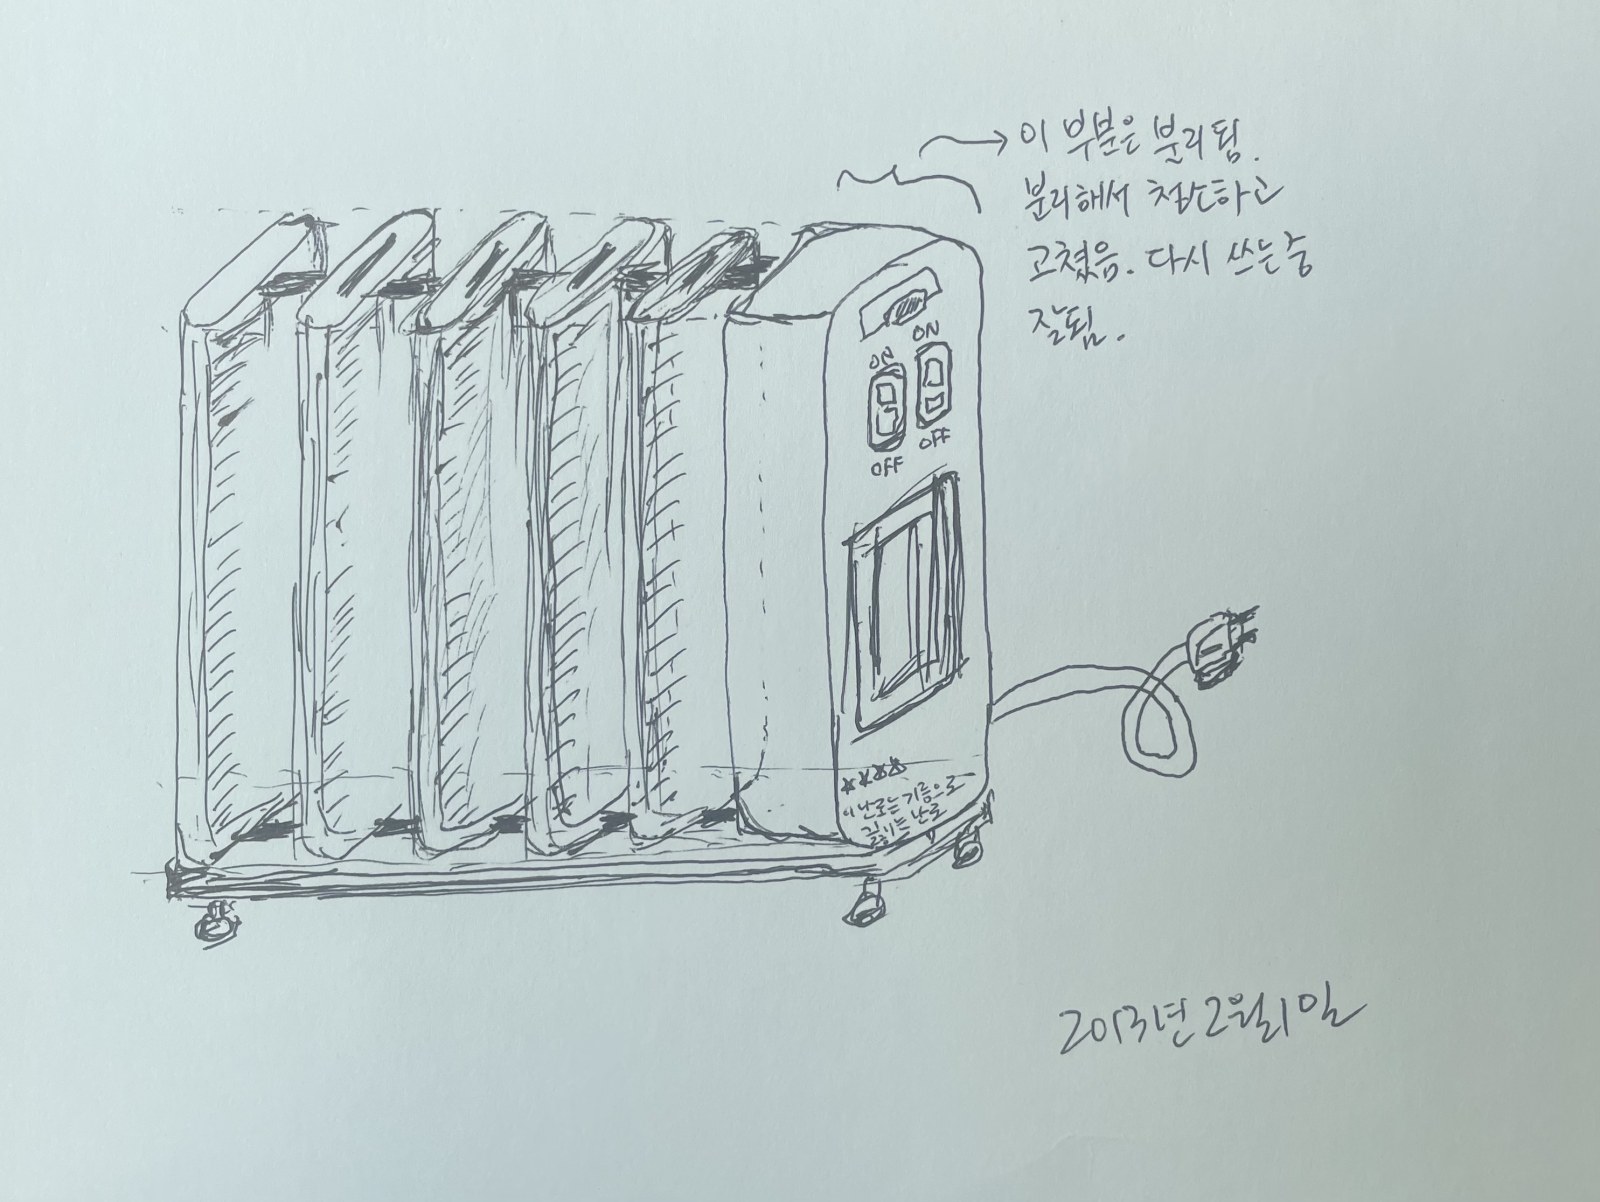 이 부분은 분리됨.
분리해서 청소하고
고쳤음. 다시 쓰는 중
잘됨.
ON
ON
OFF
OFF
이 난로는 기름으로
끓이는 난로
2013년 2월 1일